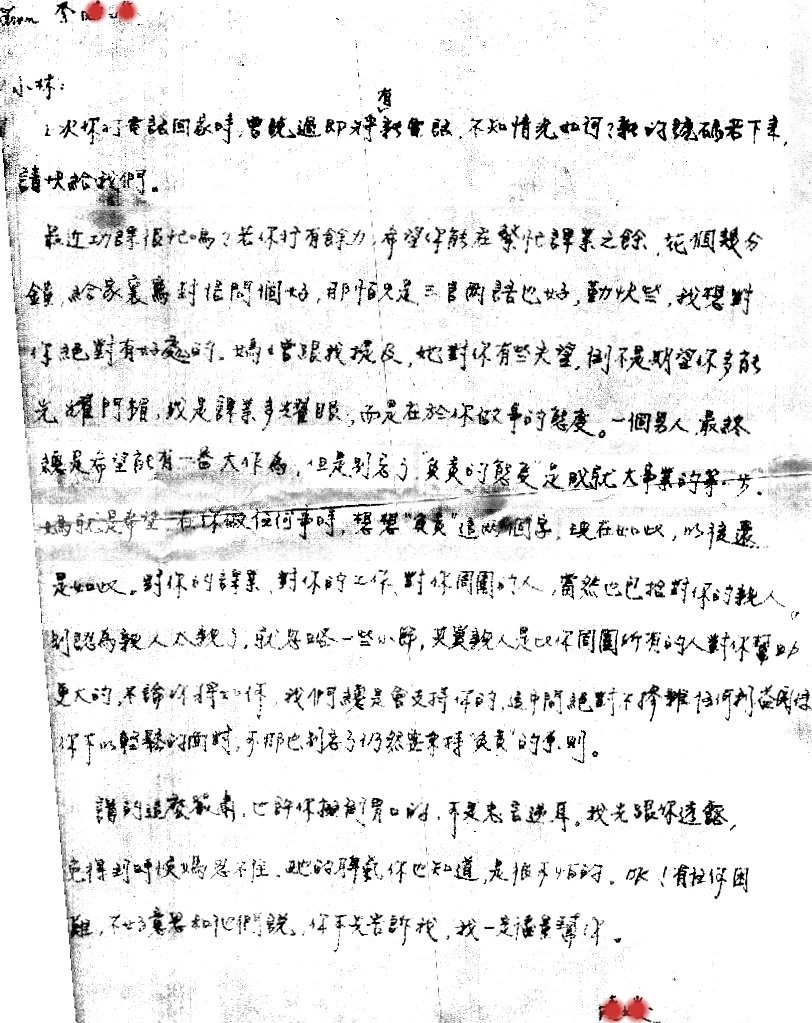 From
小林:
上次你打電話回家時,曾說過即將有新電話,不知情況如何?新的號碼若下來,
請快給我們。
最近功課很忙嗎?若你行有餘力,希望你能在繁忙課業之餘,花個幾分
鐘,給家裏寫封信問個好,那怕只是三言兩語也好,勤快些,我想對
你絕對有好處的。媽曾跟我提及,她對你有些失望,倒不是期望你多能
光耀門楣,或是課業多耀眼,而是在於你做事的態度。一個男人,最終
總是希望能有一番大作為,但是別忘了"負責的態度"是成就大事業的第一步.
媽就是希望在你做任何事時,想想"負責"這兩個字,現在如此,以後還
是如此。對你的課業、對你的工作、對你周圍的人,當然也包括對你的親人,
別認為親人太親了,就忽略一些小節,其實親人是比你周圍所有的人對你幫助
更大的,不論你將如何,我們總是會支持你的,這中間絕對不摻雜任何利益關係
你可以輕鬆的面對,可那也別忘了仍然要秉持"負責"的原則。
講的這麼嚴肅,也許你會倒胃口的,可是忠言逆耳。我先跟你透露,
免得到時候媽忍不住,她的脾氣你也知道,是很可怕的。OK!有任何困
難,不好意思和他們說,你可先告訴我,我一定儘量幫你。